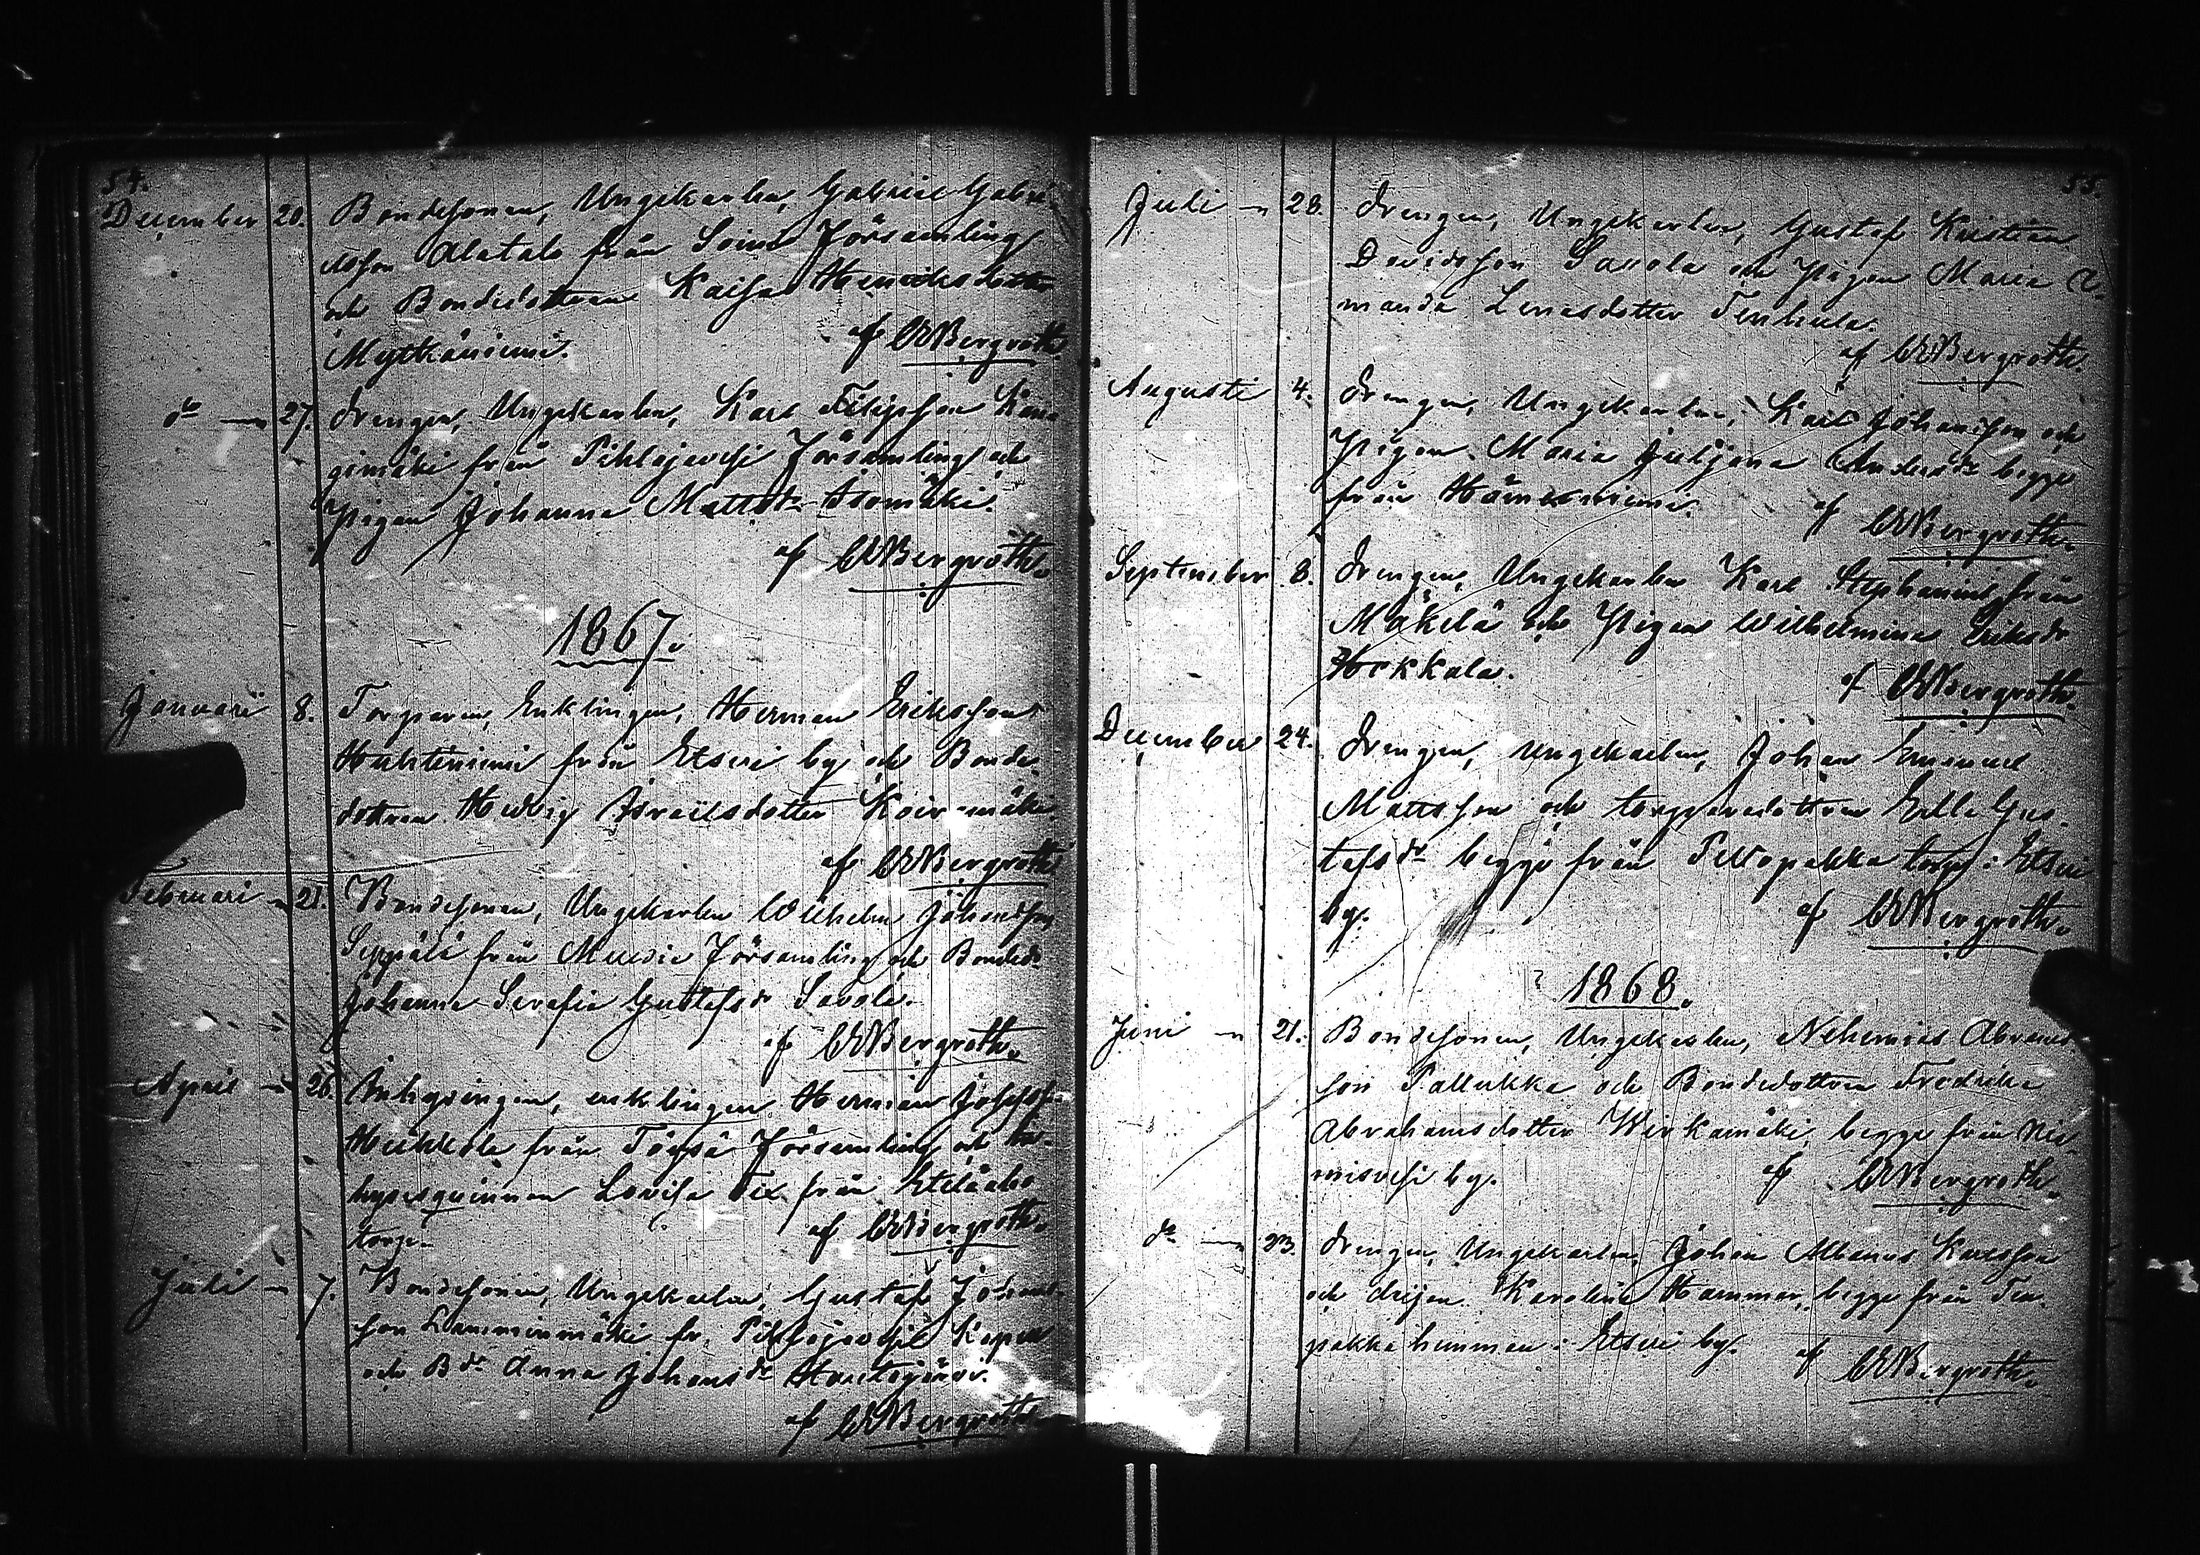 54.
December 20. Bondesonen, Ungekarlen, Gabriel Gabri-
elsson Alatalo från Soini Församling
och Bondedottren Kaisa Henriksdotter
Mytkäniemi. af CWBergroth
do — 27. Drengen, Ungekarlen, Karl Filipsson Kan-
gimäki från Pihlajavesi Församling och
Pigan Johanna Mattsdr Isomäki.
af CWBergroth.
1867.
Januari 8. Torparen, Enklingen, Herman Eriksson
Huhtiniemi från Etseri by och Bonde-
dottren Hedvig Israelsdotter Koiramäki.
af CWBergroth
Februari — 21. Bondesonen, Ungekarlen Wilhelm Johansson
Seppälä från Församling och Bondedr
Johanna Serafia Gustafsdr Savola.
af CWBergroth.
April — 26. Inhysingen, enklingen Herman Josefss.
från Töysä Församling och In-
hysesqvinnan Lovisa från Eteläaho
torp. af CWBergroth.
Juli — 7. Bondesonen, Ungekarlen, Gustaf Johans-
son Lamminmäki fr. Pihlajavesi Kapell
och Bdr Anna Johansdr Hautajärvi.
af CWBergroth.
55.
Juli — 28. Drengen, Ungekarlen, Gustaf Kristian
Davidsson Savola och Pigan Maria A-
manda Lenasdotter
af CWBergroth.
Augusti 4. Drengen, Ungekarlen, Karl Johansson och
Pigan Maria Juljana Andersdr begge
från Hämeniemi. af CWBergroth.
September 8. Drengen, Ungekarlen Karl Stephanus från
Mäkelä och Pigan Wilhelmina Eriksdr
Hokkala. af CWBergroth.
December 24. Drengen, Ungekarlen, Johan Emanuel
Mattsson och torparedottren Eulla Gus-
tafsdr begge från torp i Etseri
by. af CWBergroth.
1868.
Juni — 21. Bondesonen, Ungekarlen, Nehemias Abrams-
son Pallukka och Bondedottren Fredrika
Abrahamsdotter Wirkamäki, begge från Nie-
misvesi by. af CWBergroth.
do — 23. Drengen, Ungekarlen, Johan Albanus Karlsson
och Pigan Karolina Hammar, begge från
pakka hemman i Etseri by. af CWBergroth.